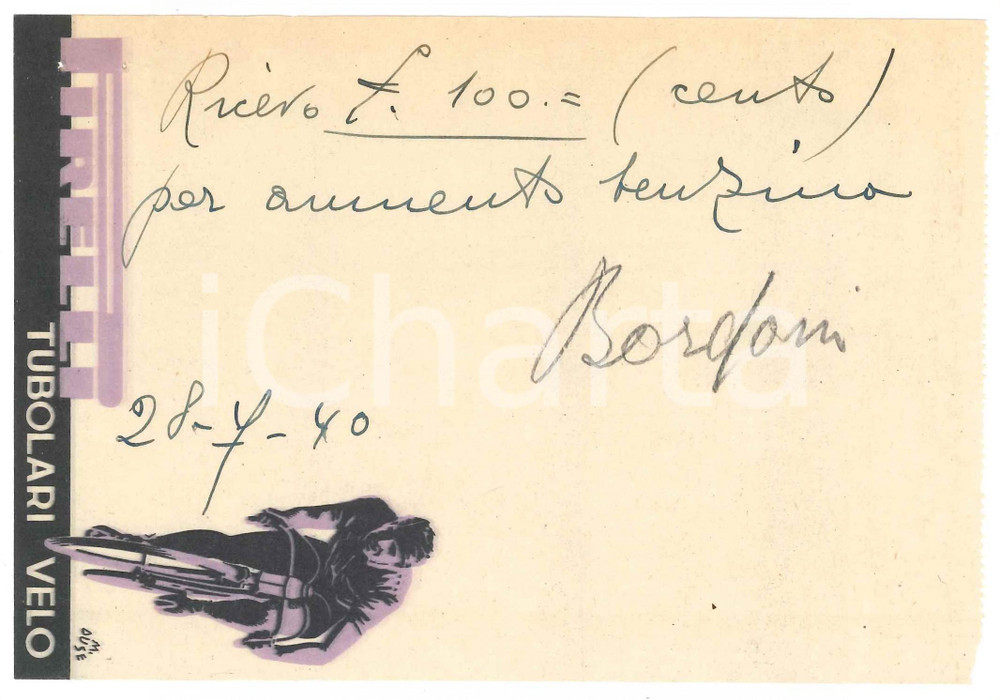 Ricevo £. 100.= (cento)
per aumento benzina
Bordoni
28-7-40
PIRELLI
TUBOLARI VELO
M. DUSE
iCharta